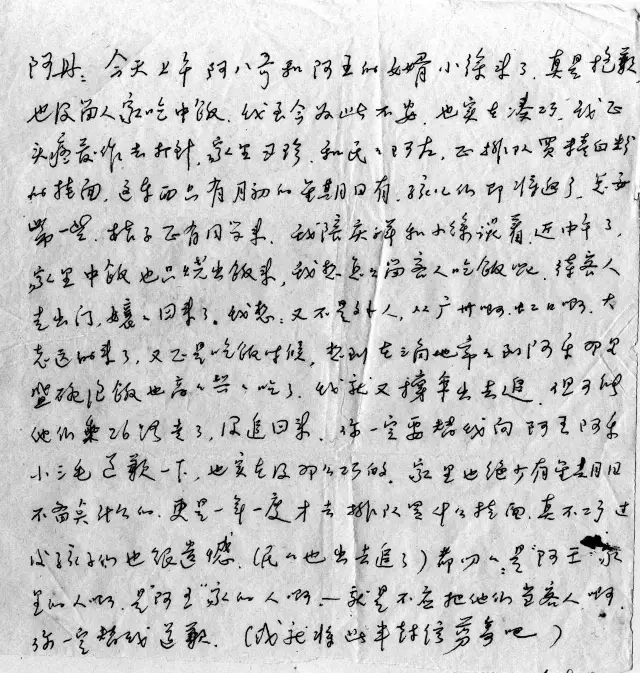 阿丹：今天上午阿八哥和阿王的女婿小徐来了，真是抱歉，
也没留人家吃中饭，我至今为此不安，也实在凑巧，我正
头痛发作去打针，家里又珍和民民陪在，正排队买精白粉
的挂面，这东西只有月初的星期日有，孩儿们即将返了，总要
带一些，桔子正有同学来，我陪庆祥和小徐谈着，近中午了，
家里中饭也只烧出饭来，我想怎么留客人吃饭呢，待客人
走出门，孃孃回来了。我想：又不是外人，从广州啊，虹口啊，大
老远的来了，又正是吃饭时候，想到在三角地常常到阿乐那里
盛碗泡饭也高高兴兴吃了，我就又撑伞出去追，但可能
他们乘26路走了，没追回来，你一定要替我向阿王阿乐
小三毛道歉一下，也实在没那么巧的，家里也绝少有星期日
不备点什么的，更是一年一度才去排队买什么挂面，真不巧过
后孩子们也很遗憾，（民民也出去追了）都叨叨：是“阿王”家
里的人啊，是“阿王”家的人啊，——就是不应把他们当客人啊，
你一定替我道歉，（或就将此半封信剪寄吧）